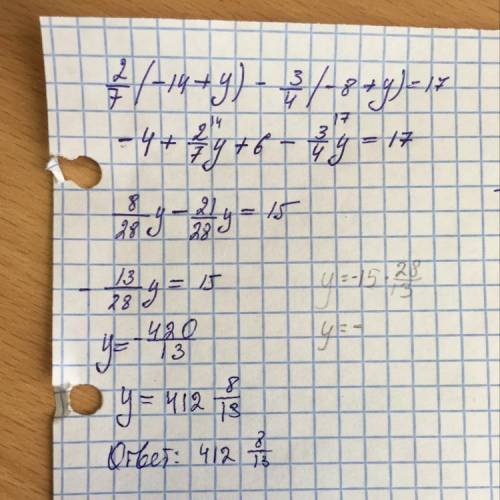 2/7 (-14 + y) - 3/4 (-8 + y) = 17
-4 + 2/7 14 y + 6 - 3/4 17 y = 17
8/28 y - 21/28 y = 15
- 13/28 y = 15
y = -15 · 28/13
y = - 420/13
y = -
y = 412 8/13
Ответ: 412 8/13